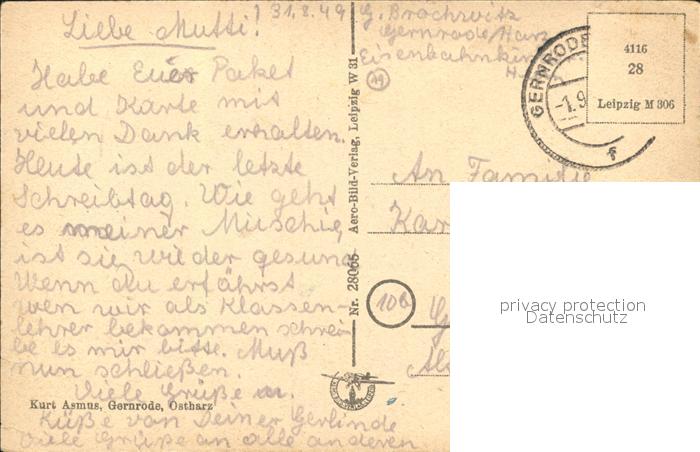 31.8.49
Liebe Mutti!
Habe Euer Paket
und Karte mit
vielen Dank erhalten.
Heute ist der letzte
Schreibtag. Wie geht
es meiner Muschi,
ist sie wieder gesund
Wenn du erfährst
wen wir als Klassen-
lehrer bekommen schrei-
be es mir bitte. Muß
nun schließen.
Viele Grüße u.
Küße von Deiner Gerlinde
Viele Grüße an alle anderen
Kurt Asmus, Gernrode, Ostharz
Nr. 28055 Aero-Bild-Verlag, Leipzig W 31
G.
Gernrode/Harz
(19)
GERNRODE
-1.9
f
4116
28
Leipzig M 306
An Familie
Kar
10b
privacy protection
Datenschutz